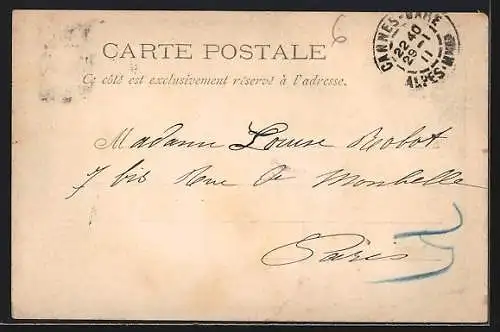 6
CARTE POSTALE
Ce côté est exclusivement réservé à l'adresse.
CANNES-GARE
22 40
29 - 1
11
ALPES-MMES
Madame Louise Robot
7 bis Rue de Monbelle
Paris